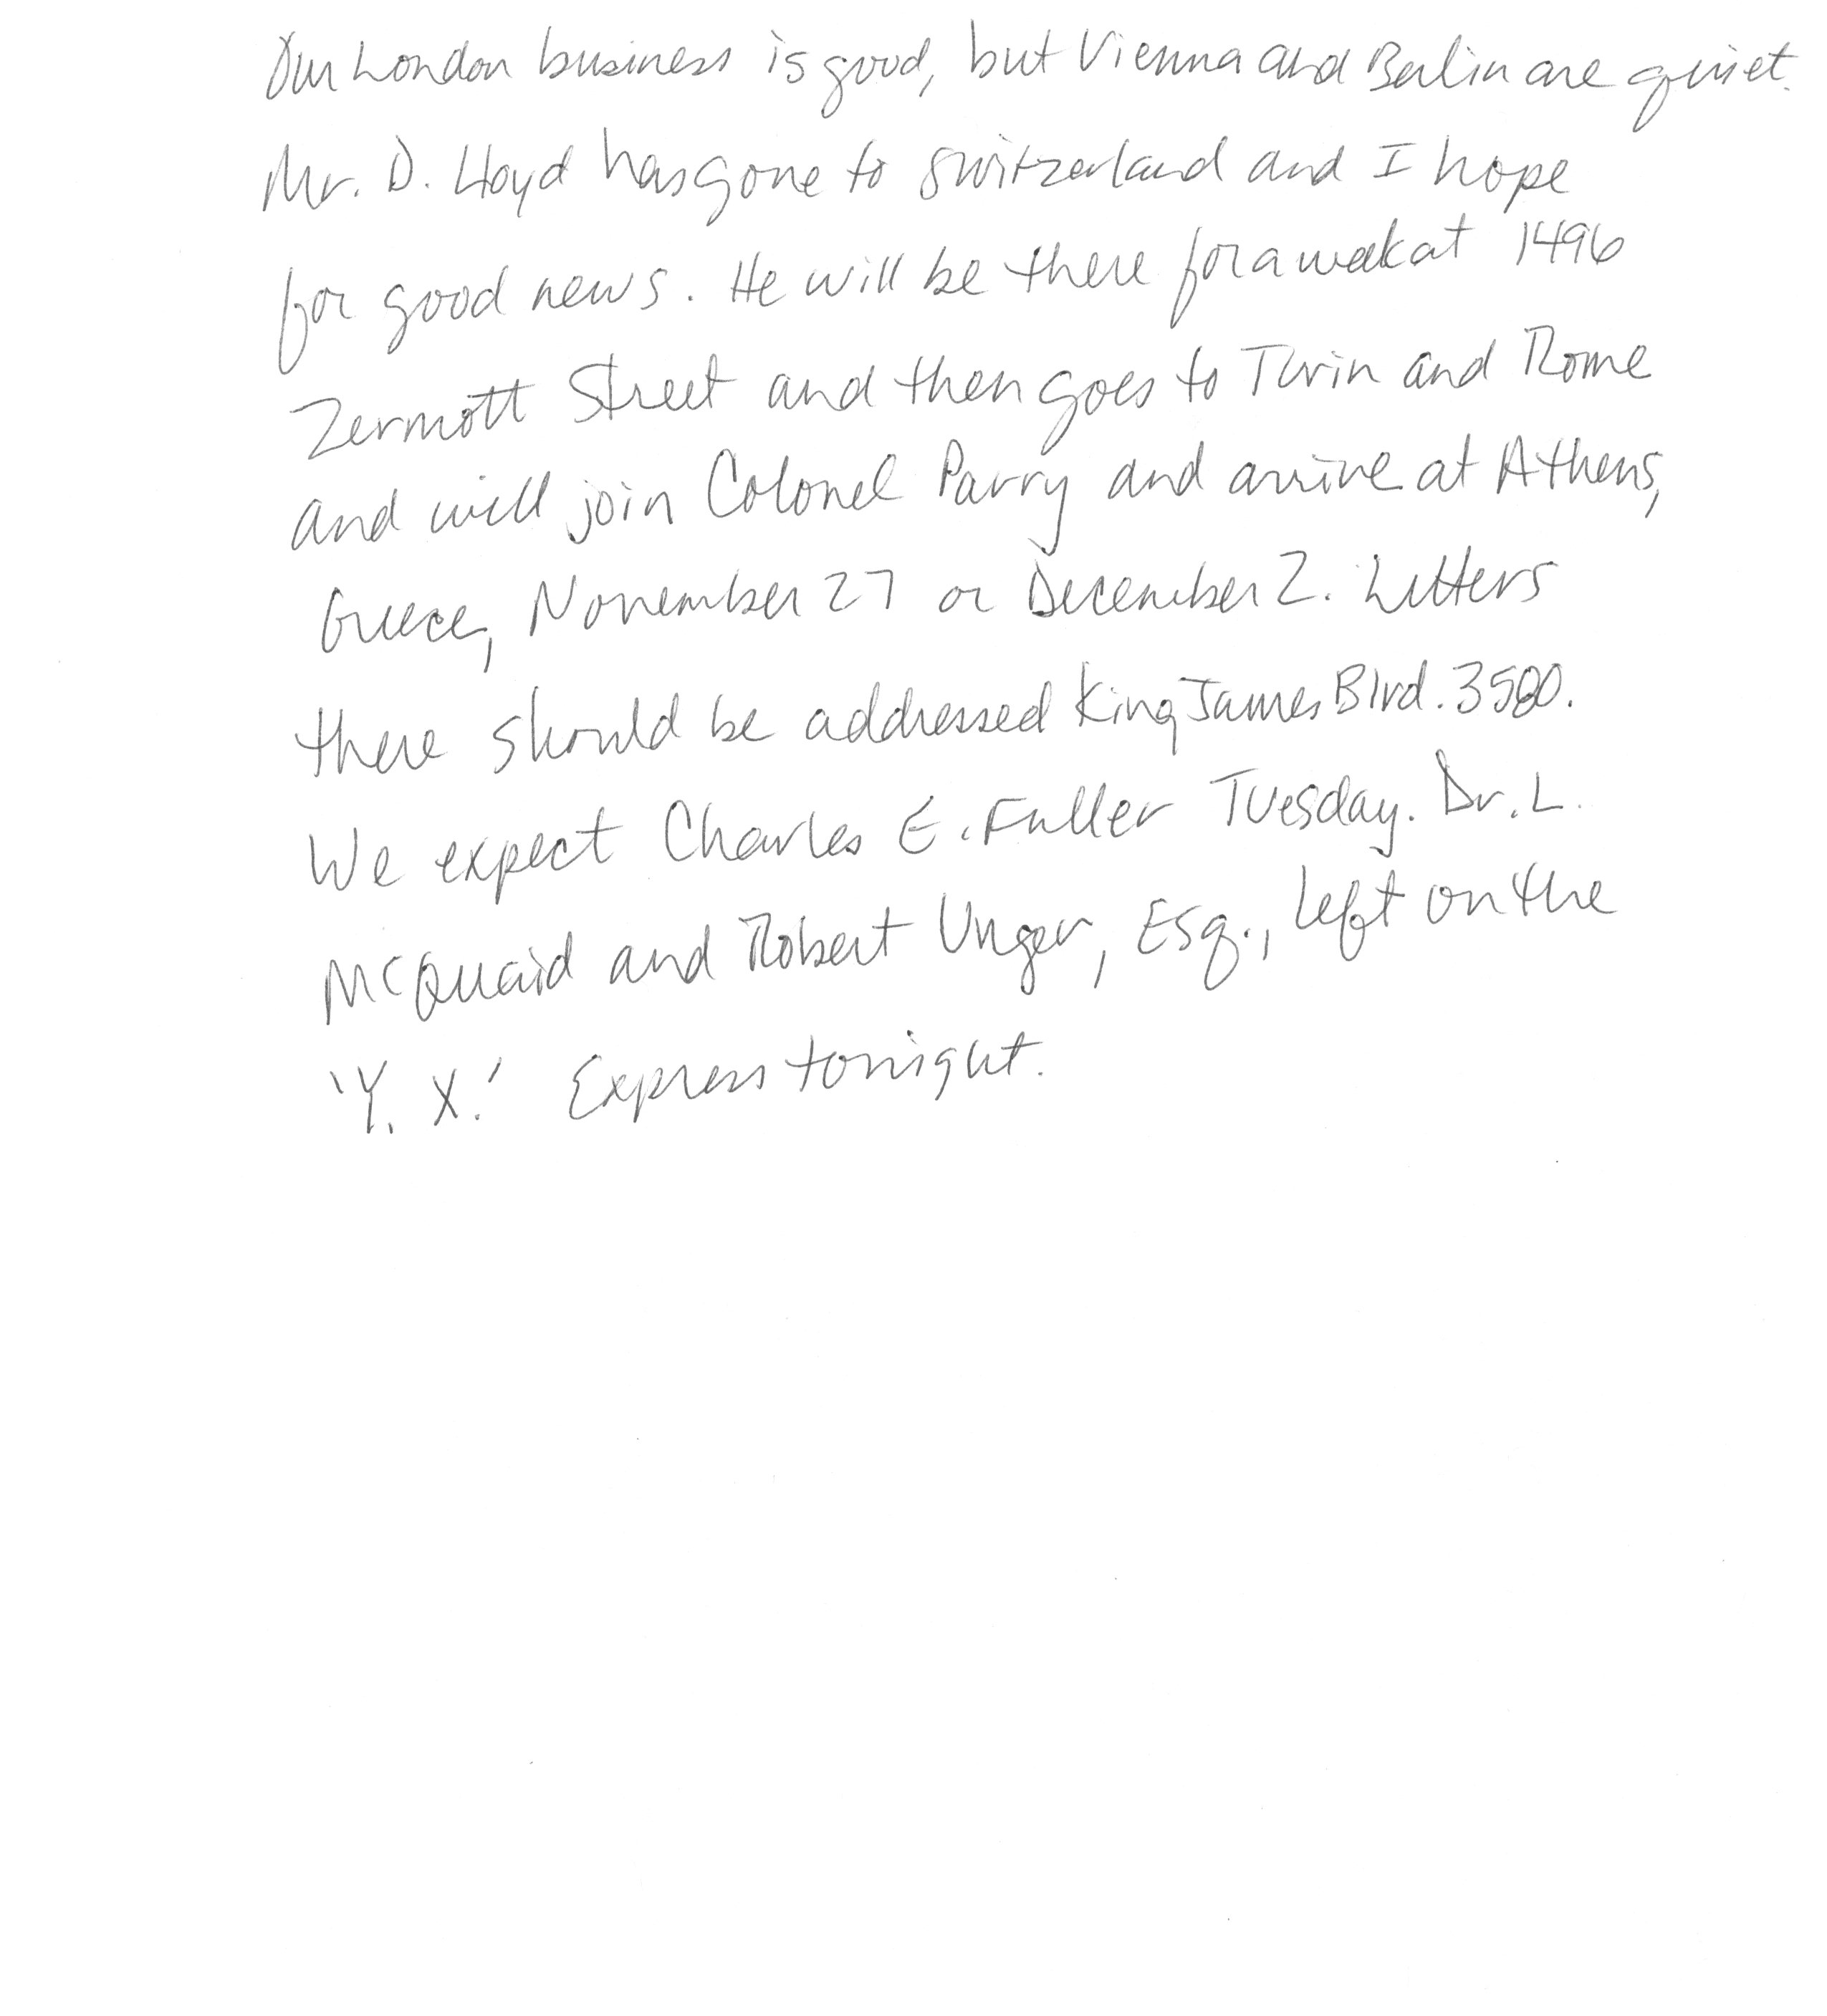 Our London business is good, but Vienna and Berlin are quiet.
Mr. D. Lloyd has gone to Switzerland and I hope
for good news. He will be there for a week at 1496
Zermott Street and then goes to Turin and Rome
and will join Colonel Parry and arrive at Athens,
Greece, November 27 or December 2. Letters
there should be addressed King James Blvd. 3580.
We expect Charles E. Fuller Tuesday. Dr. L.
McQuaid and Robert Unger, Esq., left on the
'Y. X.' Express tonight.